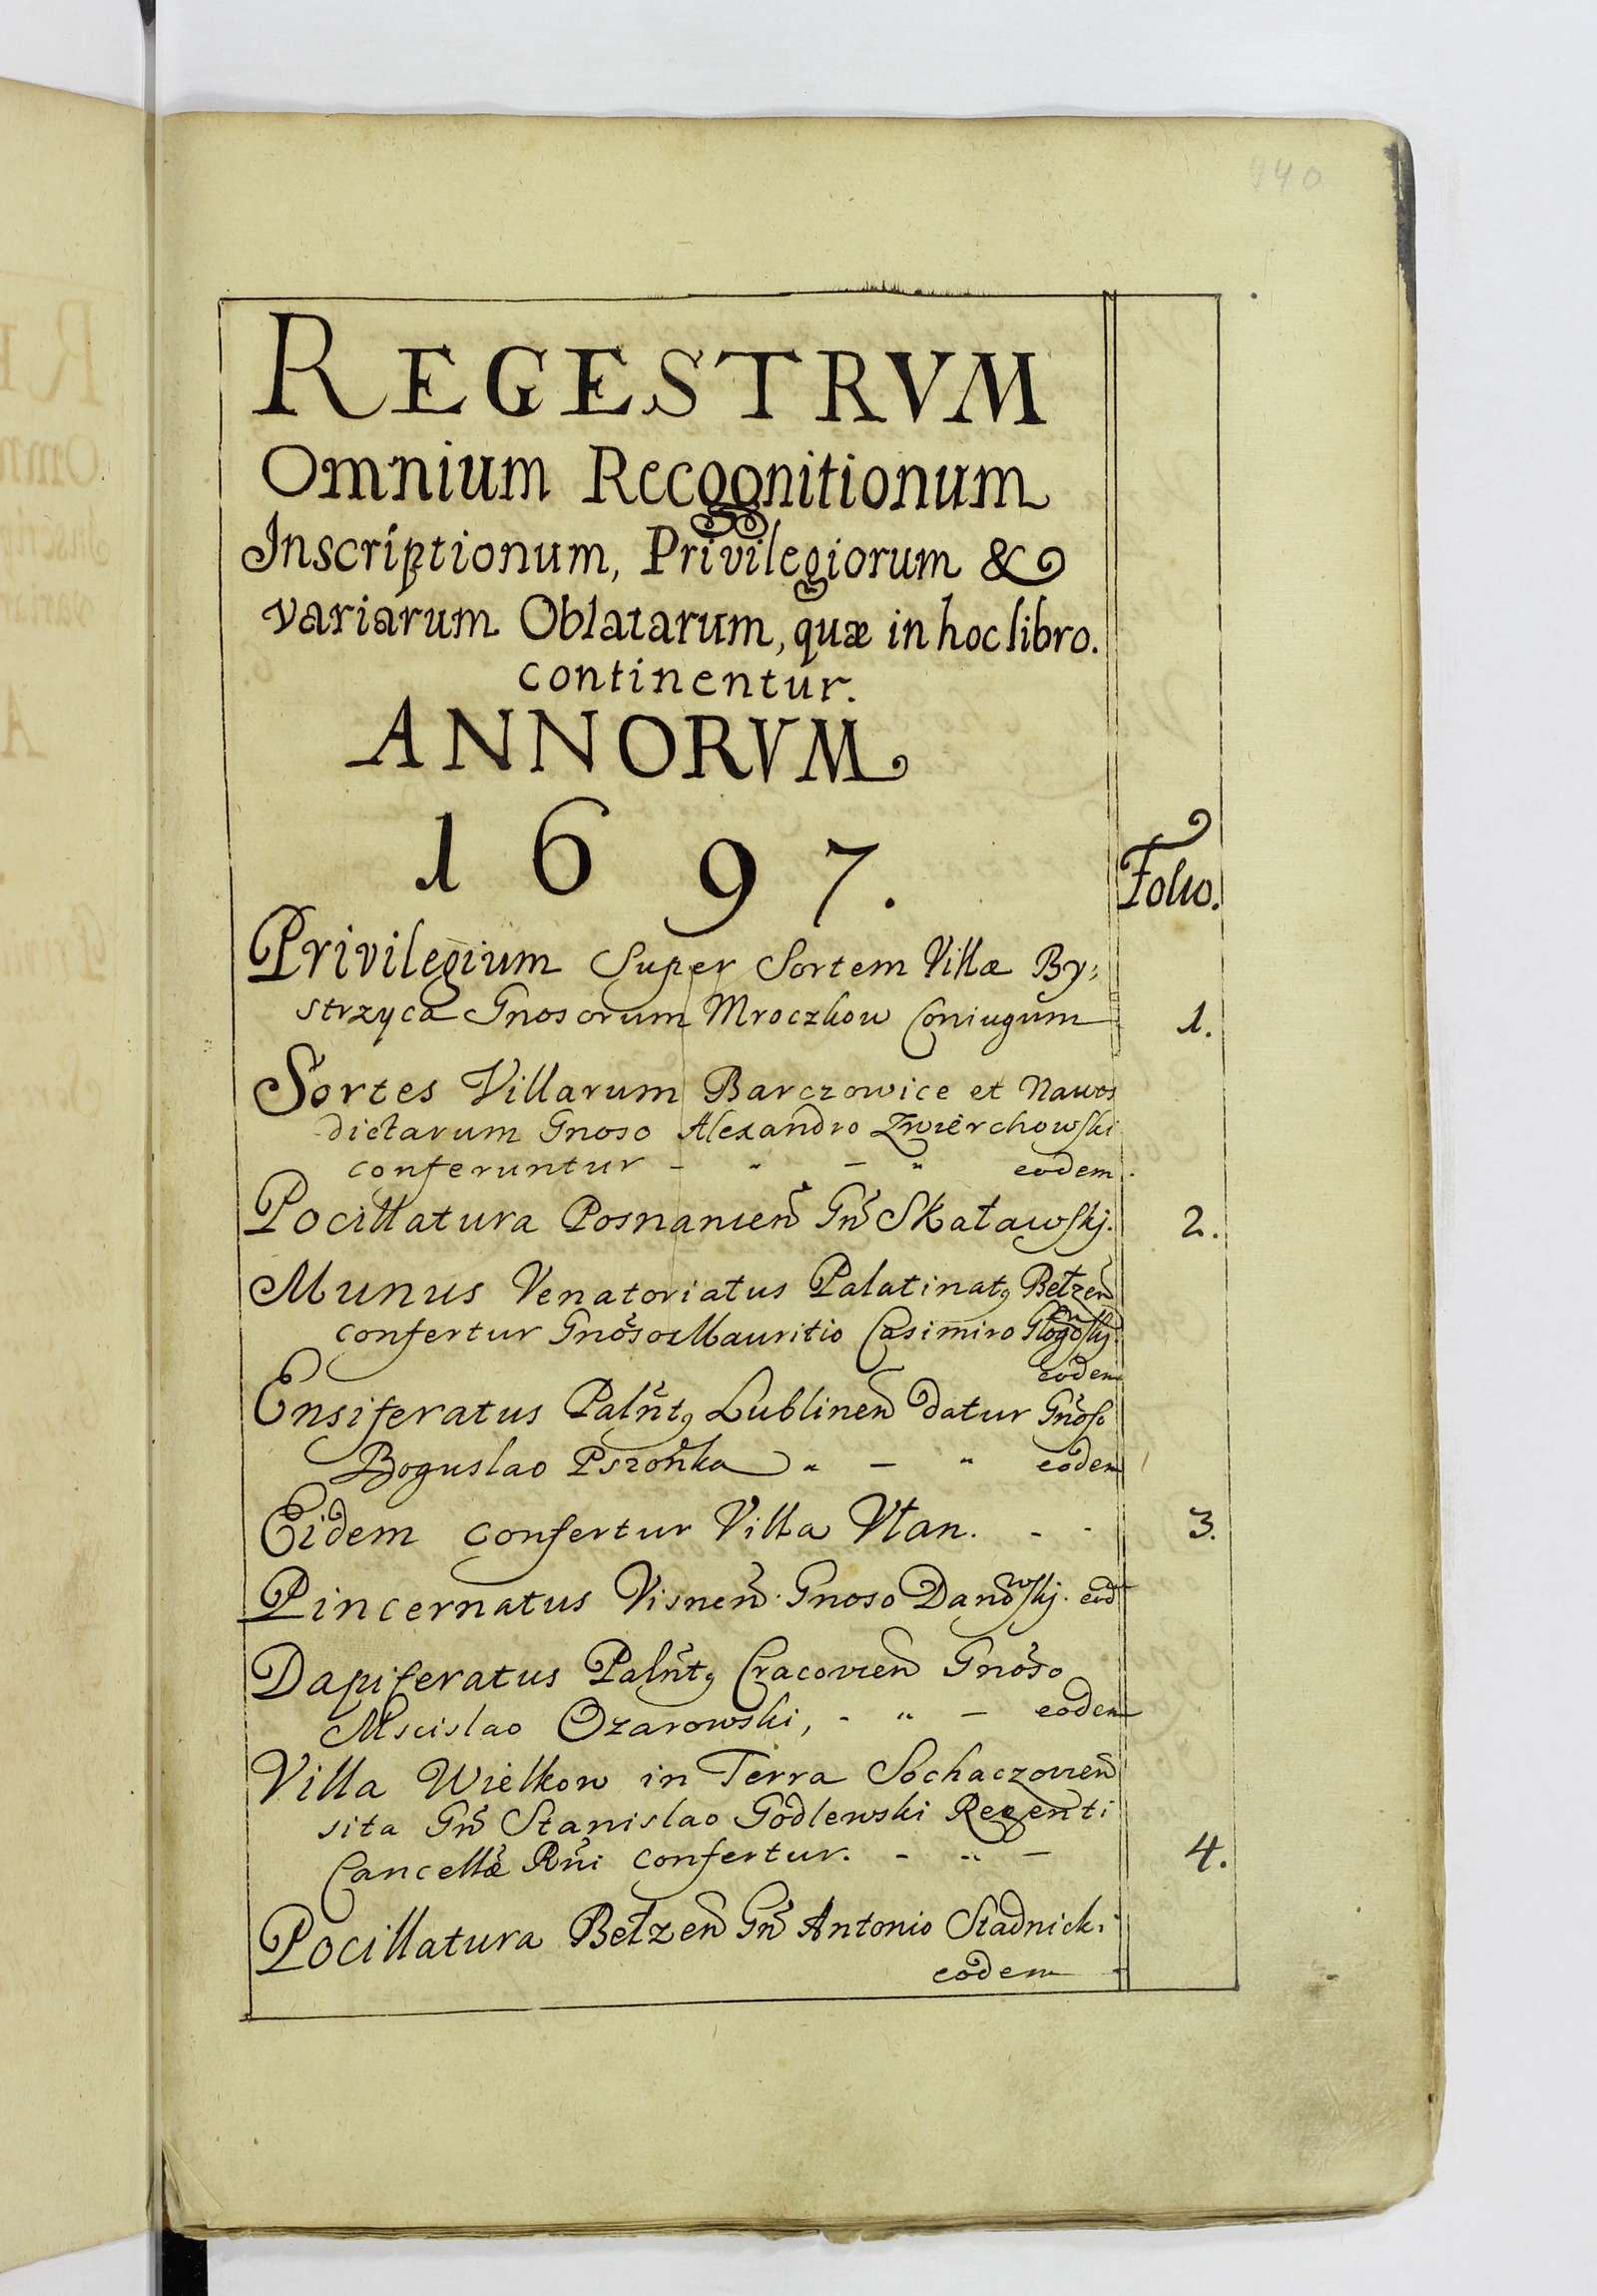 940
REGESTRVM
Omnium Recognitionum
Inscriptionum, Privilegiorum &
variarum Oblatarum, quæ in hoc libro.
continentur.
ANNORVM
1697.
Folio.
Privilegium Super Sortem Villæ By=
strzyca Gnosorum Mroczkow Coniugum 1.
Sortes Villarum Barczowice et Nawos
dictarum Gnoso Alexandro Zwierchowski
conferuntur - " - " eodem.
Pocillatura Posnanien Gn̄o Skaławskj. 2.
Munus Venatoriatus Palatinatq Bełzen
confertur Gnoso Mauritio Casimiro Głogowskj.
eodem
Ensiferatus Palntq Lublinen datur Gnoso
Boguslao Pszonka " - " eodem
Eidem confertur Villa Vłan. - - 3.
Pincernatus Visnen Gnoso Danowskj. eod
Dapiferatus Palntq Cracovien Gnoso
Mscislao Ozarowski, - " - eodem
Villa Wielkow in Terra Sochaczovien
sita Gn̄o Stanislao Godlewski Regenti
Cancellæ Rni confertur. - " - 4.
Pocillatura Bełzen Gn̄o Antonio Stadnicki
eodem